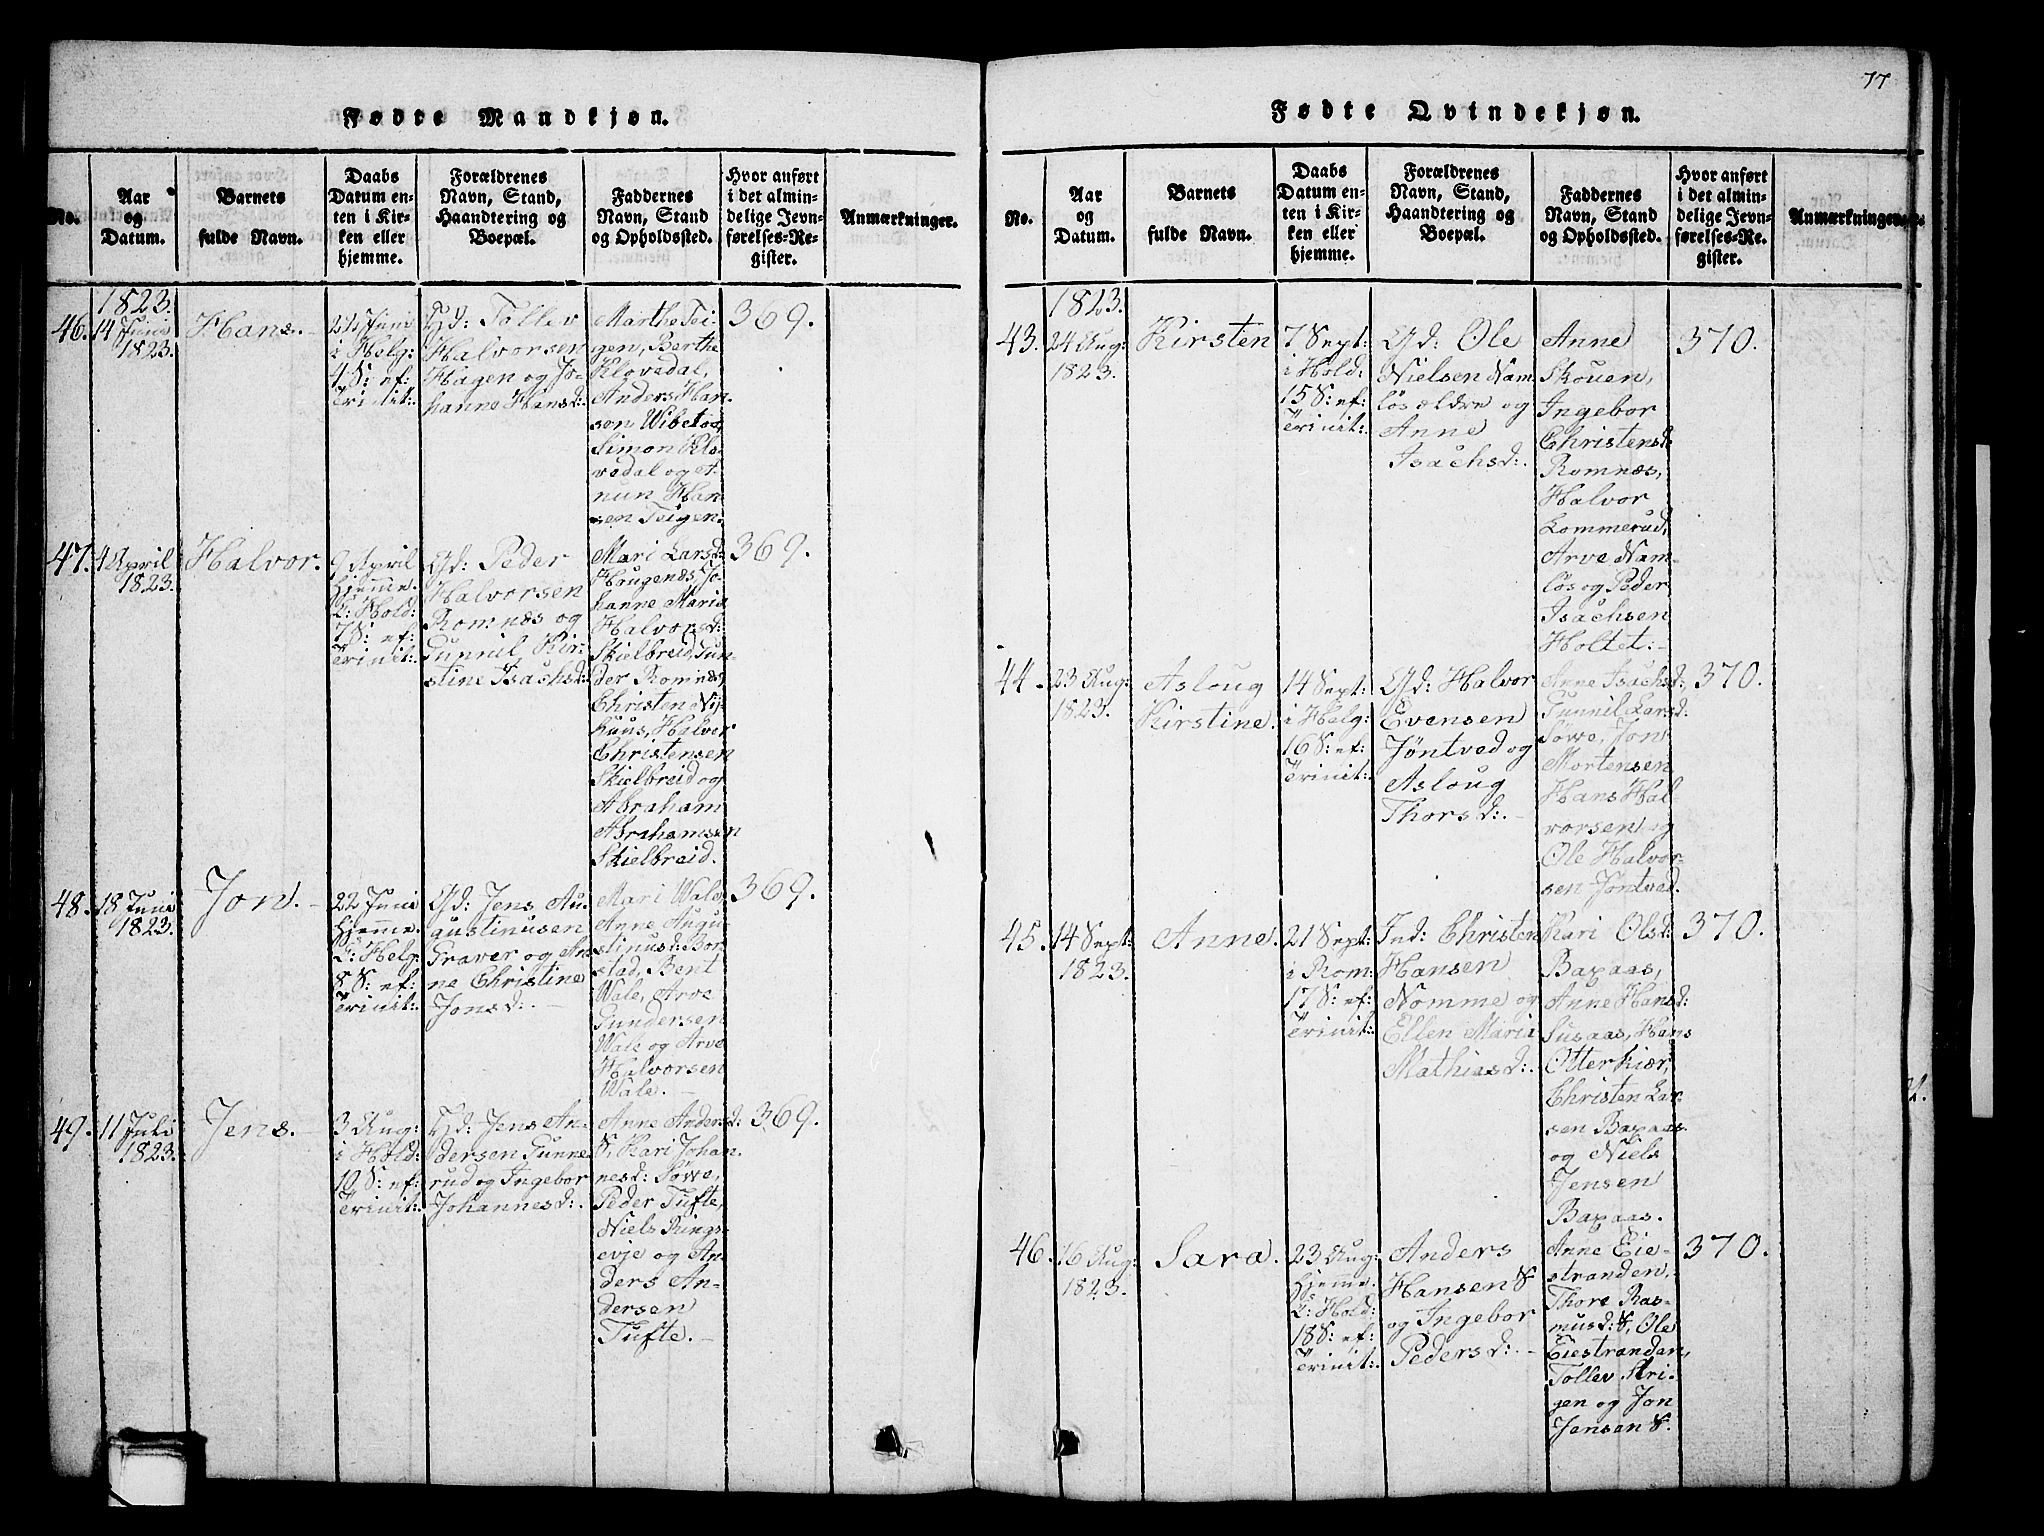 77
Fødte Mandkjøn.
No.
Aar
og
Datum.
Barnets
fulde Navn.
Daabs
Datum en-
ten i Kir-
ken eller
hjemme.
Forældrenes
Navn, Stand,
Haandtering og
Boepæl.
Faddernes
Navn, Stand
og Opholdssted.
Hvor anført
i det almin-
delige Jevn-
førelses-Re-
gister.
Anmærkninger.
1823.
46.
14 Juni
1823.
Hans.
22 Juni
i Helg:
4 S: ef:
Trinit:
Gd: Tollev
Halvorsen
Hagen og Jo-
hanne Hansd:
Marthe Tei-
gen, Berthe
Klovedal,
Anders Han-
sen Wibetoe,
Simon Klo-
vedal og A-
nun Han-
sen Teigen.
369.
47.
4 April
1823.
Halvor.
9 April
hjemme.
i Hold:
7 S: ef:
Trinit:
Gd: Peder
Halvorsen
Romnæs og
Gunnil Kir-
stine Isachsd:
Mari Larsd:
Haugenes, Jo-
hanne Maria
Halvorsd:
Skielbreid, Gun-
der Romnæs,
Christen Ny-
huus, Halvor
Christensen
Skielbreid og
Abraham
Abrahamsen
Skielbreid.
369.
48.
18 Juni
1823.
Jon.
22 Juni
hjemme.
i Helg:
8 S: ef:
Trinit:
Gd: Jens Au-
gustinusen
Graver og An-
ne Christine
Jonsd:
Mari Wale,
Anne Augu-
stinusd: Bor-
stad, Bent
Wale, Arve
Gundersen
Wale og Arve
Halvorsen
Wale.
369.
49.
11 Juli
1823.
Jens.
3 Aug:
i Hold:
10 S: ef:
Trinit:
Gd: Jens An-
dersen Gunne-
rud og Ingebor
Johannesd:
Anne Andersd:
S, Kari Johan-
nesd: Søwe,
Peder Tufte,
Niels Rings-
evje og An-
ders An-
dersen
Tufte.
369.
Fødte Qvindekjøn.
No.
Aar
og
Datum.
Barnets
fulde Navn.
Daabs
Datum en-
ten i Kir-
ken eller
hjemme.
Forældrenes
Navn, Stand,
Haandtering og
Boepæl.
Faddernes
Navn, Stand
og Opholdssted.
Hvor anført
i det almin-
delige Jevn-
førelses-Re-
gister.
Anmærkninger.
1823.
43.
24 Aug:
1823.
Kirsten
7 Sept:
i Hold:
15 S: ef:
Trinit:
Gd: Ole
Nielsen Nam-
løs ældre og
Anne
Isachsd:
Anne
Skouen,
Ingebor
Christensd:
Romnæs,
Halvor
Lommerud,
Arve Nam-
løs og Peder
Isachsen
Holtet.
370.
44.
23 Aug:
1823.
Asloug
Kirstine.
14 Sept:
i Helg:
16 S: ef:
Trinit:
Gd: Halvor
Evensen
Jøntved og
Asloug
Thorsd:
Anne Isachsd:
Gunnil Larsd:
Søwe, Jon
Mortensen
Hans Hal-
vorsen og
Ole Halvor-
sen Jøntved.
370.
45.
14 Sept:
1823.
Anne.
21 Sept:
i Rom:
17 S: ef:
Trinit:
Ind: Christen
Hansen
Nomme og
Ellen Maria
Mathiasd:
Kari Olsd:
Baxaas,
Anne Hansd:
Susaas, Hans
Otterkiær,
Christen Lar-
sen Baxaas
og Niels
Jensen
Baxaas.
370.
46.
16 Aug:
1823.
Sara.
23 Aug:
hjemme.
i Hold:
18 S: ef:
Trinit:
Anders
Hansen S
og Ingebor
Pedersd:
Anne Eie-
stranden,
Thore Ras-
musd: S, Ole
Eiestranden,
Tollev Stri-
gen og Jon
Jensen S.
370.